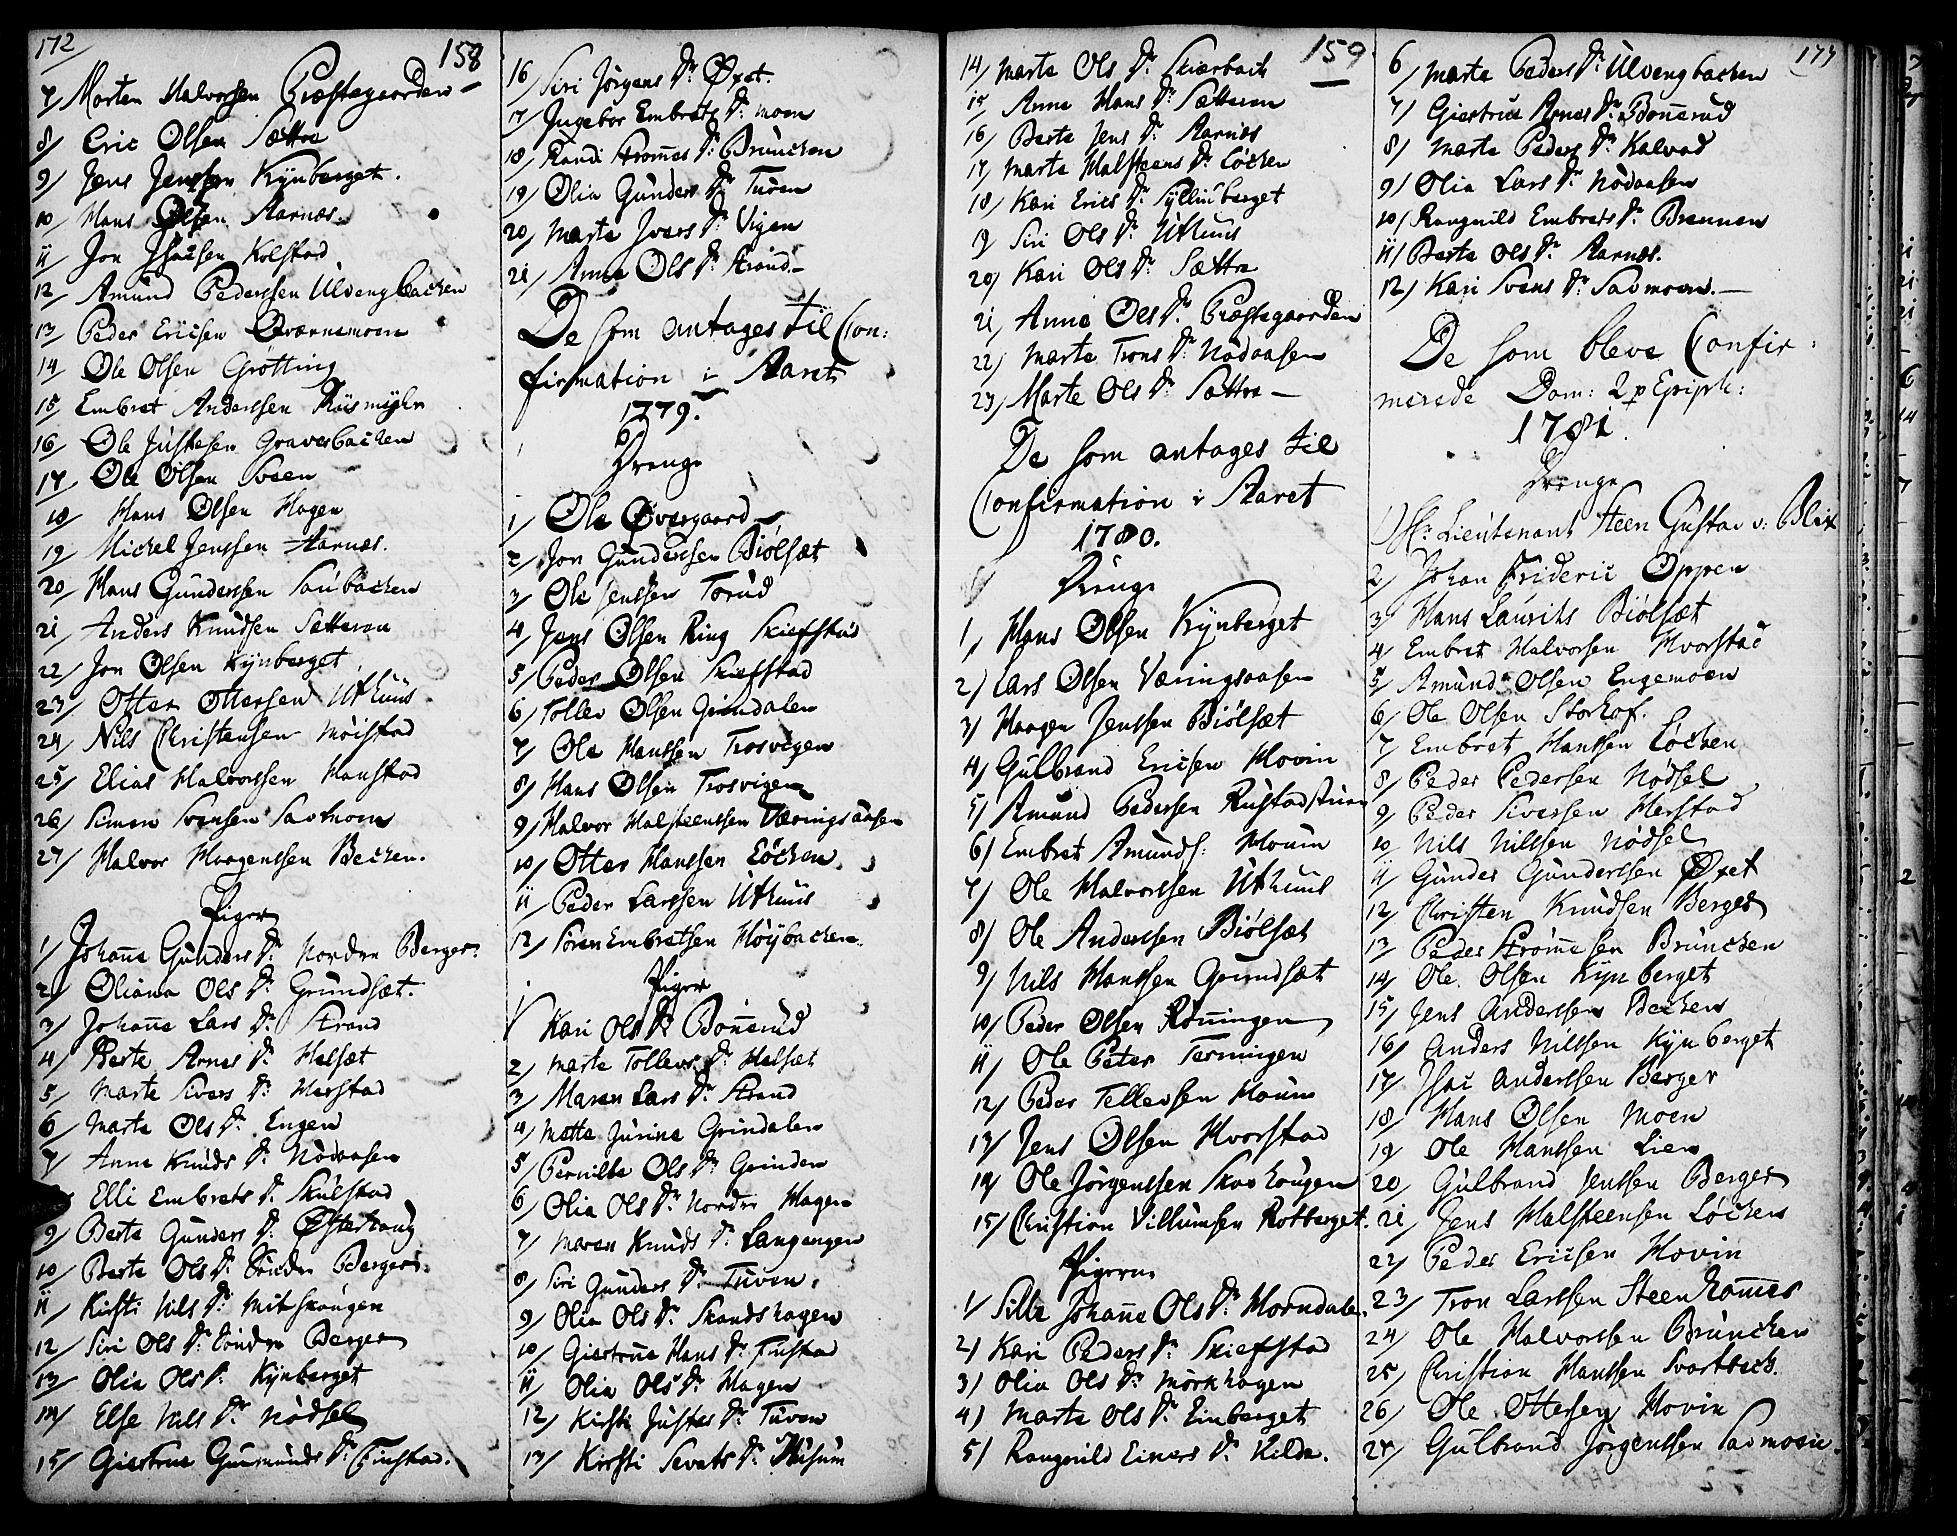 172
158
7/ Morten Halvorsen Præstegaarden
8/ Eric Olsen Sætre
9/ Jens Jenssen Kynberget.
10 Hans Olsen Aarnæs.
11 Jon Isacsen Kolstad
12/ Amund Pederssen Ulvengbachen
13/ Peder Ericsen Qværnemoen
14/ Ole Olsen Grotting
15/ Embret Anderssen Riismyhr
16/ Ole Justesen Graverbachen
17/ Ole Olsen Sveen
18/ Hans Olsen Hagen
19/ Michel Jenssen Aarnæs.
20/ Hans Gunderssen Saubachen
21/ Anders Knudsen Sætteren
22/ Jon Olsen Kynberget
23/ Otter Ottersen Uthuus
24/ Nils Christensen Moistad
25/ Elias Halvorssen Hanstad
26/ Simen Svensen Savmoen
27/ Halvor Haagenssen Bechen.
Piger
1/ Johañe Gunders Dr Nordre Berger
2/ Oliana Ols Dr Grundsæt.
3/ Johañe Lars Dr Strand
4/ Berte Arnes Dr Helsæt
5/ Marte Sivers Dr Herstad
6/ Marte Ols Dr Engen
7/ Anne Knuds Dr Nodaasen
Elli Embrets Dr Skulstad
9/ Berte Gunders Dr Østerhaug
10/ Berte Ols Dr Søndre Berger.
11/ Kirsti Nils Dr Mitskougen
12/ Siri Ols Dr Søndre Berger
13/ Olia Ols Dr Kynberget
14/ Else Nils Dr Nødsel
15/ Giertrue Guurmunds Dr Finstad.
16/ Siri Jörgens Dr Øxet.
17/ Ingebor Embrets Dr Moen
18/ Randi Stromes Dr Brunchen
19/ Olia Gunders Dr Tuven
20/ Marte Ivers Dr Vigen
21/ Anne Ols Dr Strand
De som antages til Con:
firmation i Aaret
1779.
Drenge
1/ Ole Øvergaard
2/ Jon Gunderssen Biølsæt
3/ Ole Jenssen Torud
4/ Jens Olsen Ring Skiefstad
5/ Peder Olsen Skiefstad
6/ Tollev Olsen Grindalen
7/ Ole Hanssen Trosvigen
8/ Hans Olsen Trosvigen
9/ Halvor Halsteenssen Væringsaasen
10/ Otter Hanssen Løchen
11/ Peder Larssen Uthuus
12/ Søren Embretsen Høybachen.
Piger
1/ Kari Ols Dr Boñerud
2/ Marte Tollevs Dr Helsæt
3/ Maren Lars Dr Strand
4/ Mette Jurine Grindalen
5/ Pernille Ols Dr Grinden
6/ Olia Ols Dr Nordre Hagen
7/ Maren Knuds Dr Langengen
8/ Siri Gunders Dr Tuven.
9/ Olia Ols Dr Skandshagen
10/ Giertrue Hans Dr Finstad
11/ Olia Ols Dr Hagen
12/ Kirsti Justes Dr Tuven
13/ Kirsti Sevats Dr Husum
159
14/ Marte Ols Dr Skiærbach
15 Anne Hans Dr Sætteren
16/ Berte Jens Dr Aarnæs
17/ Marte Halsteens Dr Løchen
18/ Kari Erics Dr Syllinberget
19 Siri Ols Dr Uthuus
20/ Kari Ols Dr Sættre
21/ Anne Ols Dr Præstegaarden
22/ Marte Trons Dr Nodaasen
23/ Marte Ols Dr Sættre
De som antages til
Confirmation i Aaret
1780.
Drenge
1/ Hans Olsen Kynberget
2) Lars Olsen Væringsaasen
3/ Haagen Jenssen Biølsæt
4/ Gulbrand Ericsen Hovin
5/ Amund Pedersen Rustadstuen
6) Embret Amunds: Moum
7/ Ole Halvorssen Uthuus
8) Ole Anderssen Biølsæt
9/ Nils Hanssen Grundsæt
10/ Peder Olsen Røñingen
11/ Ole Peter Terningen
12/ Peder Tellevsen Houm
13/ Jens Olsen Hvorstad
14/ Ole Jörgenssen Skavhougen
15/ Christian Villumsen Rotberget.
Pigerne
1/ Sille Johañe Ols Dr Horndalen
2/ Kari Peders Dr Skiefstad
3) Olia Ols Dr Mörkhagen
4) Marte Ols Dr Einberget
5) Rangnild Einers Dr Kilde.
173
6/ Marte Peders Dr Ulvengbachen
7/ Giertrue Arnes Dr Boñerud
8/ Marte Peders Dr Kalvad
9/ Olia Lars Dr Nodaasen
10/ Rangnild Embrets Dr Brennen
11/ Berte Ols Dr Aarnæs.
12/ Kari Svens Dr Savmoen.
De som bleve Confir:
merede Dom: 2 p Epiph:
1781.
Drenge
1) Hr. Lieutenant Steen Gustav v: Blix
2/ Johan Frideric Oppen
3/ Hans Laurits Biølsæt
4/ Embret Halvorsen Hvorstad
5/ Amund Olsen Engemoen
6/ Ole Olsen Storhof.
7/ Embret Hanssen Løchen
8/ Peder Pedersen Nødsel
9/ Peder Siverssen Herstad
10 Nils Nilssen Nødsel
11/ Gunder Gunderssen Øxet
12/ Christen Knudsen Berger
13 Peder Strömesen Brunchen
14/ Ole Olsen Kynberget
15/ Jens Anderssen Bechen
16/ Anders Nilssen Kynberget
17/ Isac Anderssen Berger
18/ Hans Olsen Moen
19/ Ole Hanssen Lien
20/ Gulbrand Jenssen Berger
21/ Jens Halsteensen Løchen
22/ Peder Ericsen Hovin
23/ Tron Larssen Steenhamer
24/ Ole Halvorssen Brunchen
25/ Christian Hanssen Svartbech.
26/ Ole Ottersen Hovin
27/ Gulbrand Jörgenssen Savmoen.